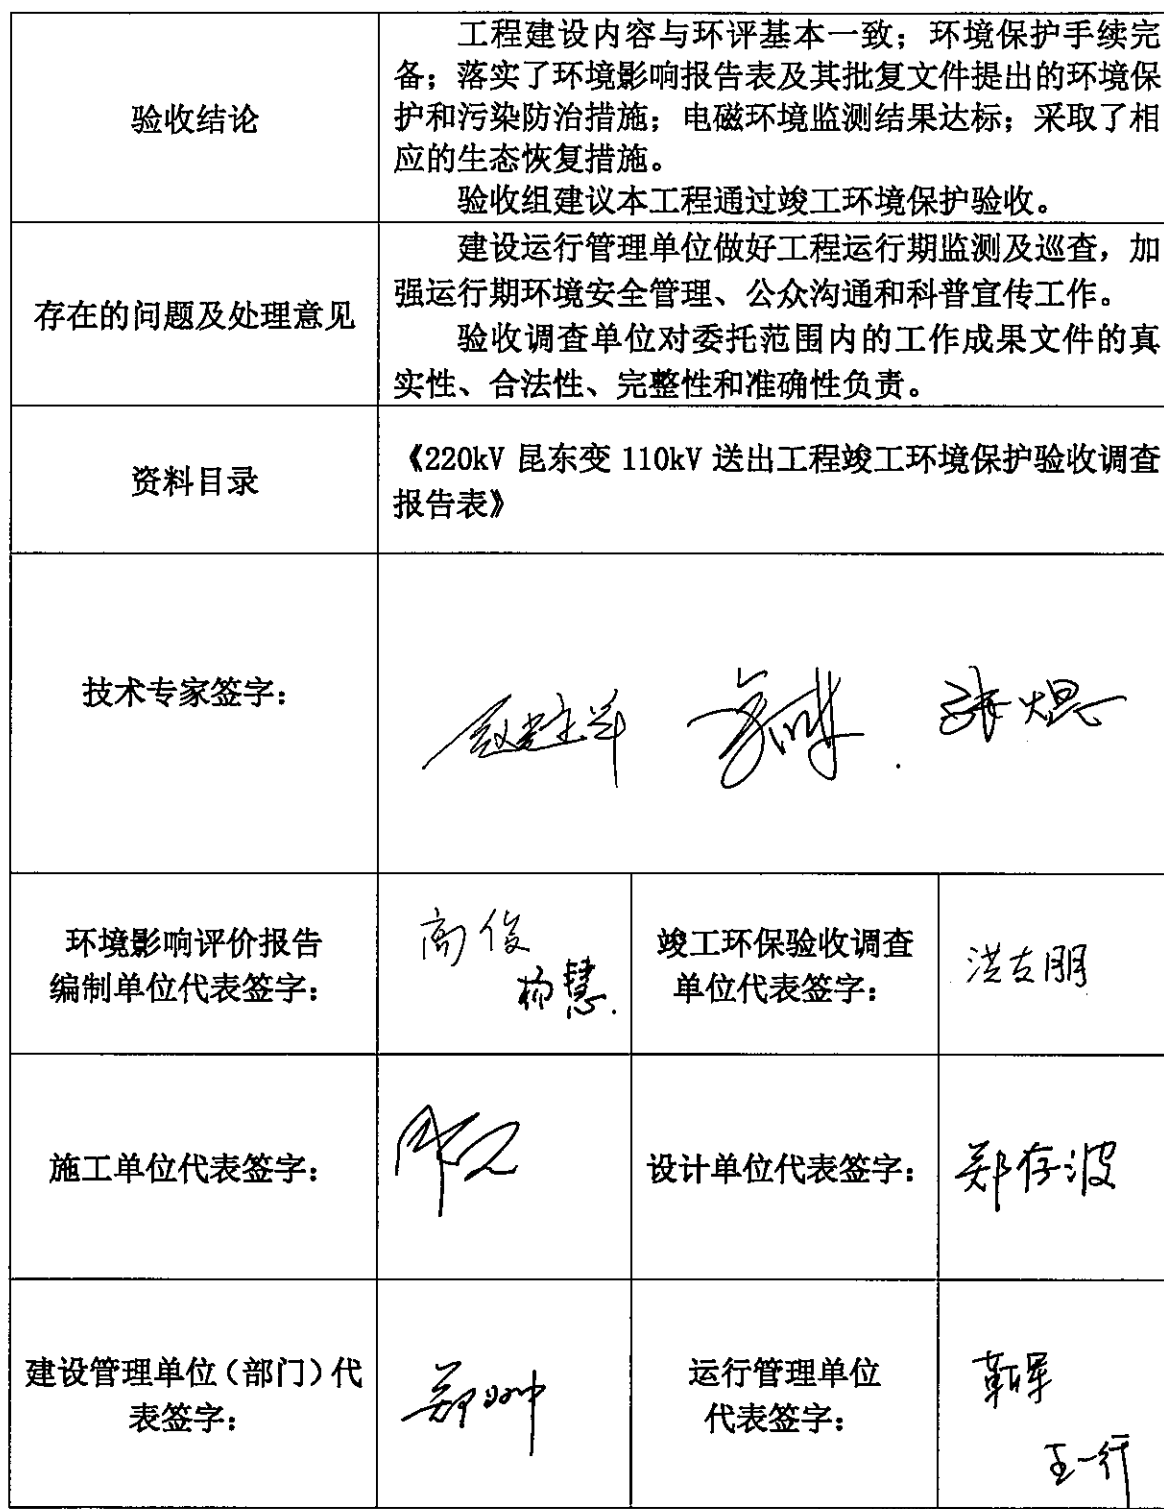 验收结论
工程建设内容与环评基本一致；环境保护手续完
备；落实了环境影响报告表及其批复文件提出的环境保
护和污染防治措施；电磁环境监测结果达标；采取了相
应的生态恢复措施。
验收组建议本工程通过竣工环境保护验收。
存在的问题及处理意见
建设运行管理单位做好工程运行期监测及巡查，加
强运行期环境安全管理、公众沟通和科普宣传工作。
验收调查单位对委托范围内的工作成果文件的真
实性、合法性、完整性和准确性负责。
资料目录
《220kV 昆东变 110kV 送出工程竣工环境保护验收调查
报告表》
技术专家签字：
环境影响评价报告
编制单位代表签字：
高俊
杨慧
竣工环保验收调查
单位代表签字：
洪友朋
施工单位代表签字：
设计单位代表签字：
郑存波
建设管理单位（部门）代
表签字：
运行管理单位
代表签字：
王一行